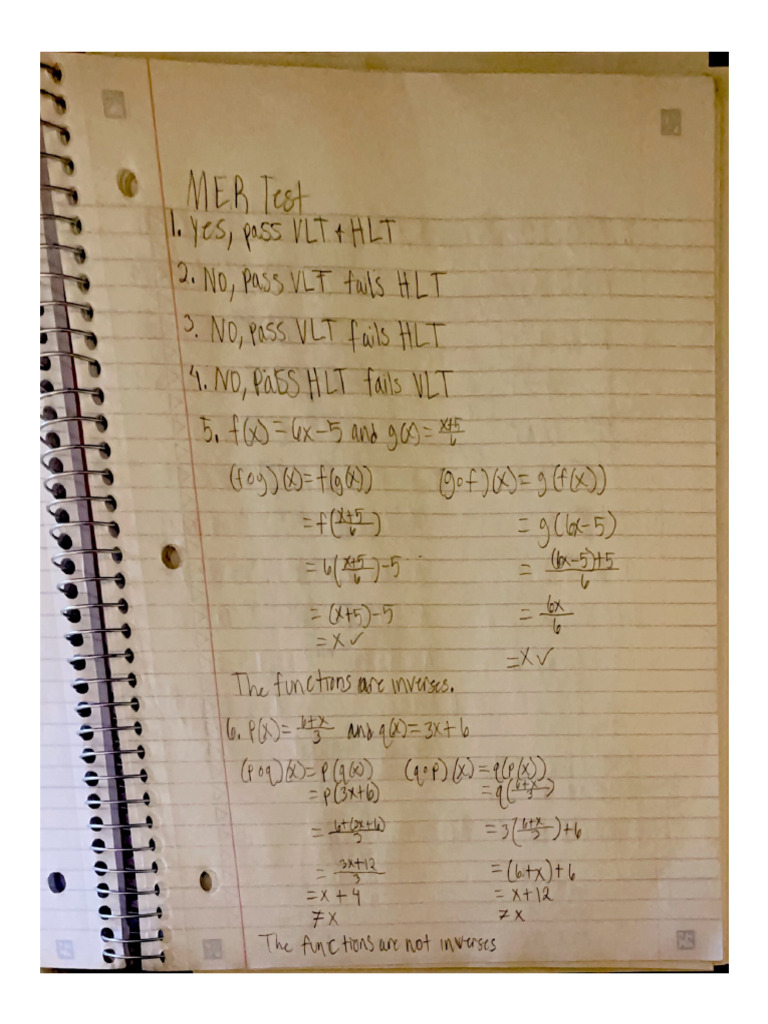 MER Test
1. Yes, pass VLT + HLT
2. No, pass VLT fails HLT
3. No, pass VLT fails HLT
4. No, pass HLT fails VLT
5. f(x) = 6x-5 and g(x) = (x+5)/6
(f∘g)(x) = f(g(x)) (g∘f)(x) = g(f(x))
= f((x+5)/6) = g(6x-5)
= 6((x+5)/6)-5 = ((6x-5)+5)/6
= (x+5)-5 = 6x/6
= x ✓ = x ✓
The functions are inverses.
6. p(x) = (6+x)/3 and q(x) = 3x+6
(p∘q)(x) = p(q(x)) (q∘p)(x) = q(p(x))
= p(3x+6) = q((6+x)/3)
= (6+(3x+6))/3 = 3((6+x)/3)+6
= (3x+12)/3 = (6+x)+6
= x+4 = x+12
≠ x ≠ x
The functions are not inverses